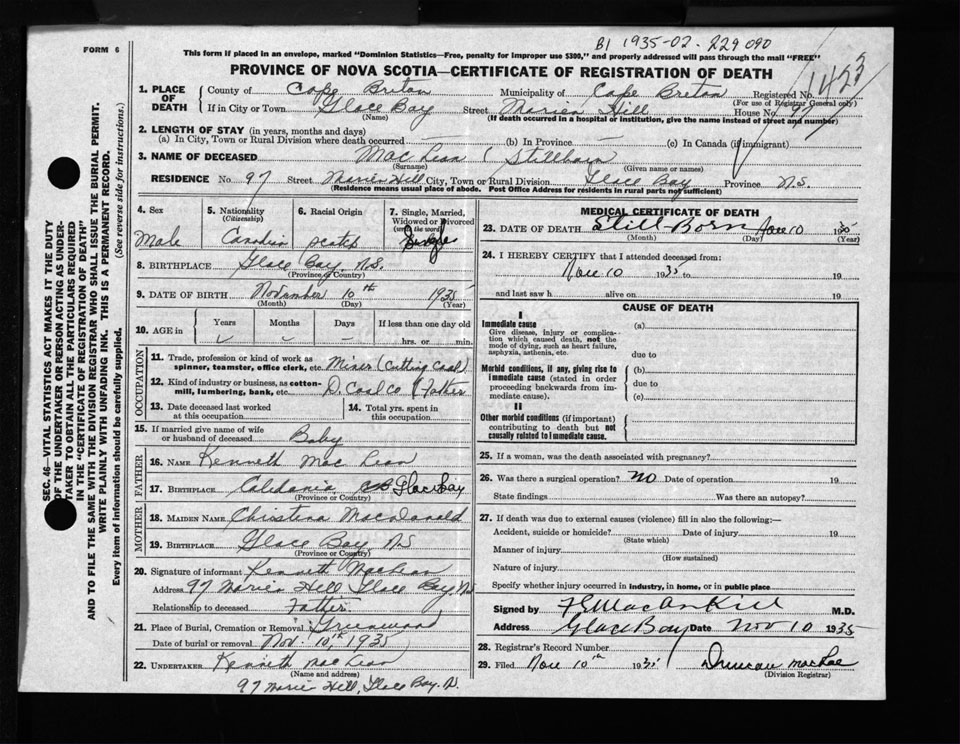 B1 1935-02-229090
FORM 6
This form if placed in an envelope, marked "Dominion Statistics—Free, penalty for improper use $300," and properly addressed will pass through the mail "FREE"
PROVINCE OF NOVA SCOTIA—CERTIFICATE OF REGISTRATION OF DEATH
1423
1. PLACE OF DEATH
County of Cape Breton Municipality of Cape Breton Registered No.
(For use of Registrar General only)
If in City or Town Glace Bay Street Marien Hill House No. 97
(Name) (If death occurred in a hospital or institution, give the name instead of street and number)
2. LENGTH OF STAY (in years, months and days)
(a) In City, Town or Rural Division where death occurred (b) In Province (c) In Canada (if immigrant)
3. NAME OF DECEASED Mac Lean (Stillborn
(Surname) (Given name or names)
RESIDENCE No. 97 Street Marien Hill City, Town or Rural Division Glace Bay Province N.S.
(Residence means usual place of abode. Post Office Address for residents in rural parts not sufficient)
4. Sex 5. Nationality 6. Racial Origin 7. Single, Married,
(Citizenship) Widowed or Divorced
(write the word)
Male Canadian Scotch Single
8. BIRTHPLACE Glace Bay. N.S.
(Province or Country)
9. DATE OF BIRTH November 10th 1935
(Month) (Day) (Year)
10. AGE in Years Months Days If less than one day old
hrs. or min.
OCCUPATION
11. Trade, profession or kind of work as
spinner, teamster, office clerk, etc. Miner (Cutting Coal)
12. Kind of industry or business, as cotton-
mill, lumbering, bank, etc. D. Coal Co (Father
13. Date deceased last worked 14. Total yrs. spent in
at this occupation this occupation
15. If married give name of wife
or husband of deceased Baby
FATHER
16. NAME Kenneth Mac Lean
17. BIRTHPLACE Caledonia CB Glace Bay
(Province or Country)
MOTHER
18. MAIDEN NAME Christina MacDonald
19. BIRTHPLACE Glace Bay NS
(Province or Country)
20. Signature of informant Kenneth MacLean
Address 97 Marien Hill Glace Bay NS
Relationship to deceased Father
21. Place of Burial, Cremation or Removal Greenwood
Date of burial or removal Nov. 10th, 1935
22. UNDERTAKER Kenneth Mac Lean
(Name and address)
97 Marien Hill, Glace Bay. N.
MEDICAL CERTIFICATE OF DEATH
23. DATE OF DEATH Still-Born Nov 10 1935
(Month) (Day)
24. I HEREBY CERTIFY that I attended deceased from:
Nov 10 1935 to 19
and last saw h alive on 19
CAUSE OF DEATH
I
Immediate cause (a)
Give disease, injury or complica-
tion which caused death, not the
mode of dying, such as heart failure,
asphyxia, asthenia, etc. due to
Morbid conditions, if any, giving rise to (b)
immediate cause (stated in order due to
proceeding backwards from im-
mediate cause). (c)
II
Other morbid conditions (if important)
contributing to death but not
causally related to immediate cause.
25. If a woman, was the death associated with pregnancy?
26. Was there a surgical operation? NO Date of operation 19
State findings Was there an autopsy?
27. If death was due to external causes (violence) fill in also the following:—
Accident, suicide or homicide? Date of injury 19
(State which)
Manner of injury
(How sustained)
Nature of injury
Specify whether injury occurred in industry, in home, or in public place
Signed by M.D.
Address Glace Bay Date Nov 10 1935
28. Registrar's Record Number
29. Filed Nov 10th 1935 Duncan MacRae
(Division Registrar)
SEC. 46—VITAL STATISTICS ACT MAKES IT THE DUTY
OF THE UNDERTAKER OR PERSON ACTING AS UNDER-
TAKER TO OBTAIN ALL THE PARTICULARS REQUIRED
IN THE "CERTIFICATE OF REGISTRATION OF DEATH"
AND TO FILE THE SAME WITH THE DIVISION REGISTRAR WHO SHALL ISSUE THE BURIAL PERMIT.
WRITE PLAINLY WITH UNFADING INK. THIS IS A PERMANENT RECORD.
Every item of information should be carefully supplied. (See reverse side for instructions.)